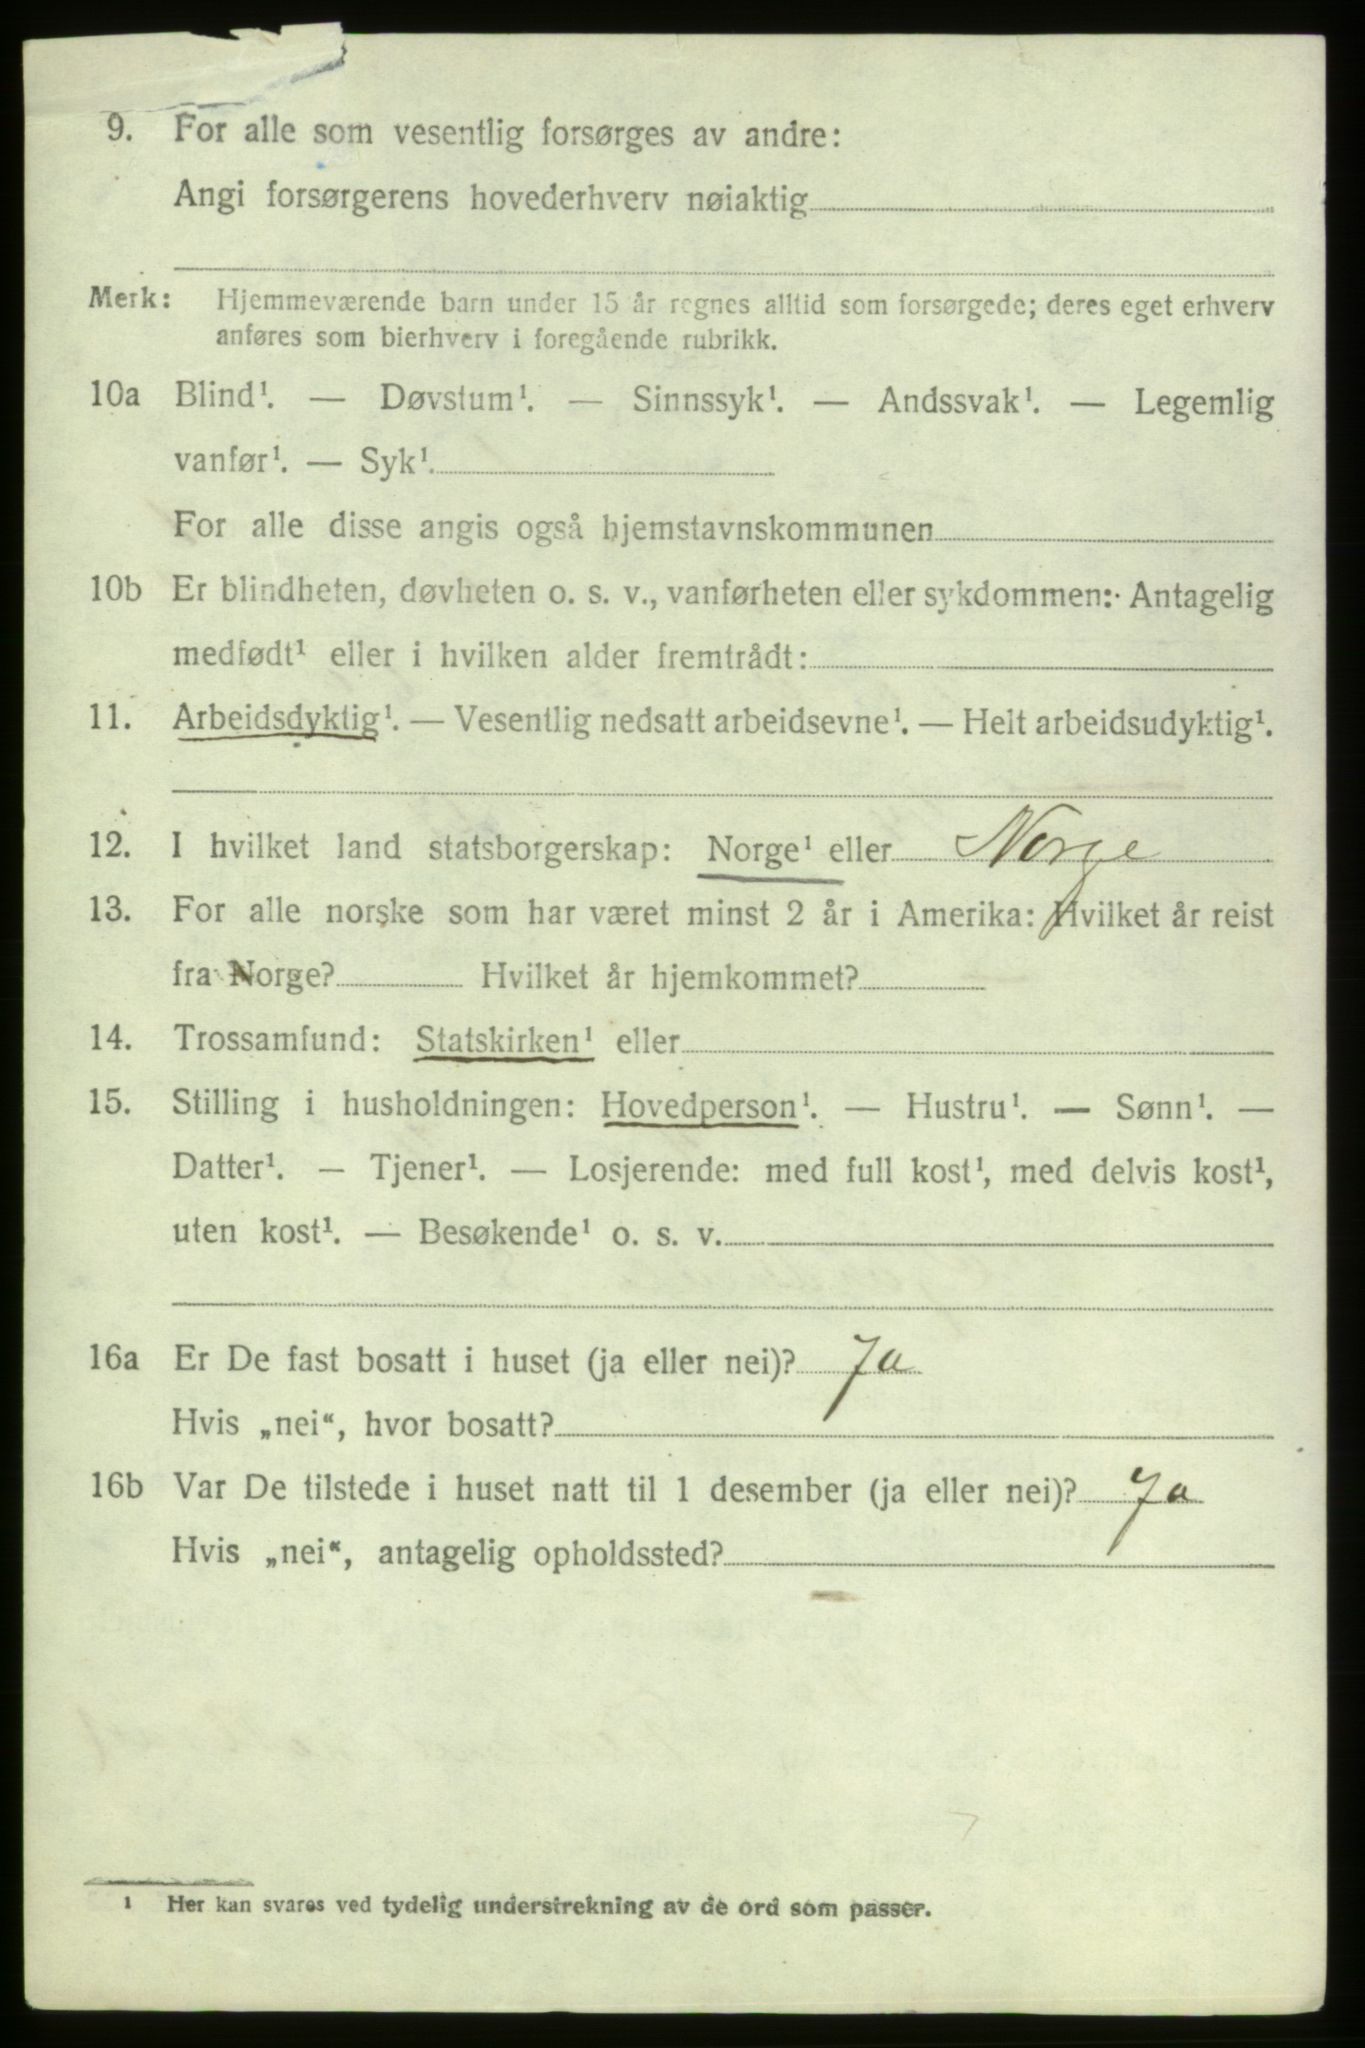 9. For alle som vesentlig forsørges av andre:
Angi forsørgerens hovederhverv nøiaktig
Merk: Hjemmeværende barn under 15 år regnes alltid som forsørgede; deres eget erhverv
anføres som bierhverv i foregående rubrikk.
10a Blind¹. — Døvstum¹. — Sinnssyk¹. — Andssvak¹. — Legemlig
vanfør¹. — Syk¹.
For alle disse angis også hjemstavnskommunen
10b Er blindheten, døvheten o. s. v., vanførheten eller sykdommen: Antagelig
medfødt¹ eller i hvilken alder fremtrådt:
11. Arbeidsdyktig¹. — Vesentlig nedsatt arbeidsevne¹. — Helt arbeidsudyktig¹.
12. I hvilket land statsborgerskap: Norge¹ eller Norge
13. For alle norske som har været minst 2 år i Amerika: Hvilket år reist
fra Norge? Hvilket år hjemkommet?
14. Trossamfund: Statskirken¹ eller
15. Stilling i husholdningen: Hovedperson¹. — Hustru¹. — Sønn¹. —
Datter¹. — Tjener¹. — Losjerende: med full kost¹, med delvis kost¹,
uten kost¹. — Besøkende¹ o. s. v.
16a Er De fast bosatt i huset (ja eller nei)? Ja
Hvis „nei“, hvor bosatt?
16b Var De tilstede i huset natt til 1 desember (ja eller nei)? Ja
Hvis „nei“, antagelig opholdssted?
1 Her kan svares ved tydelig understrekning av de ord som passer.